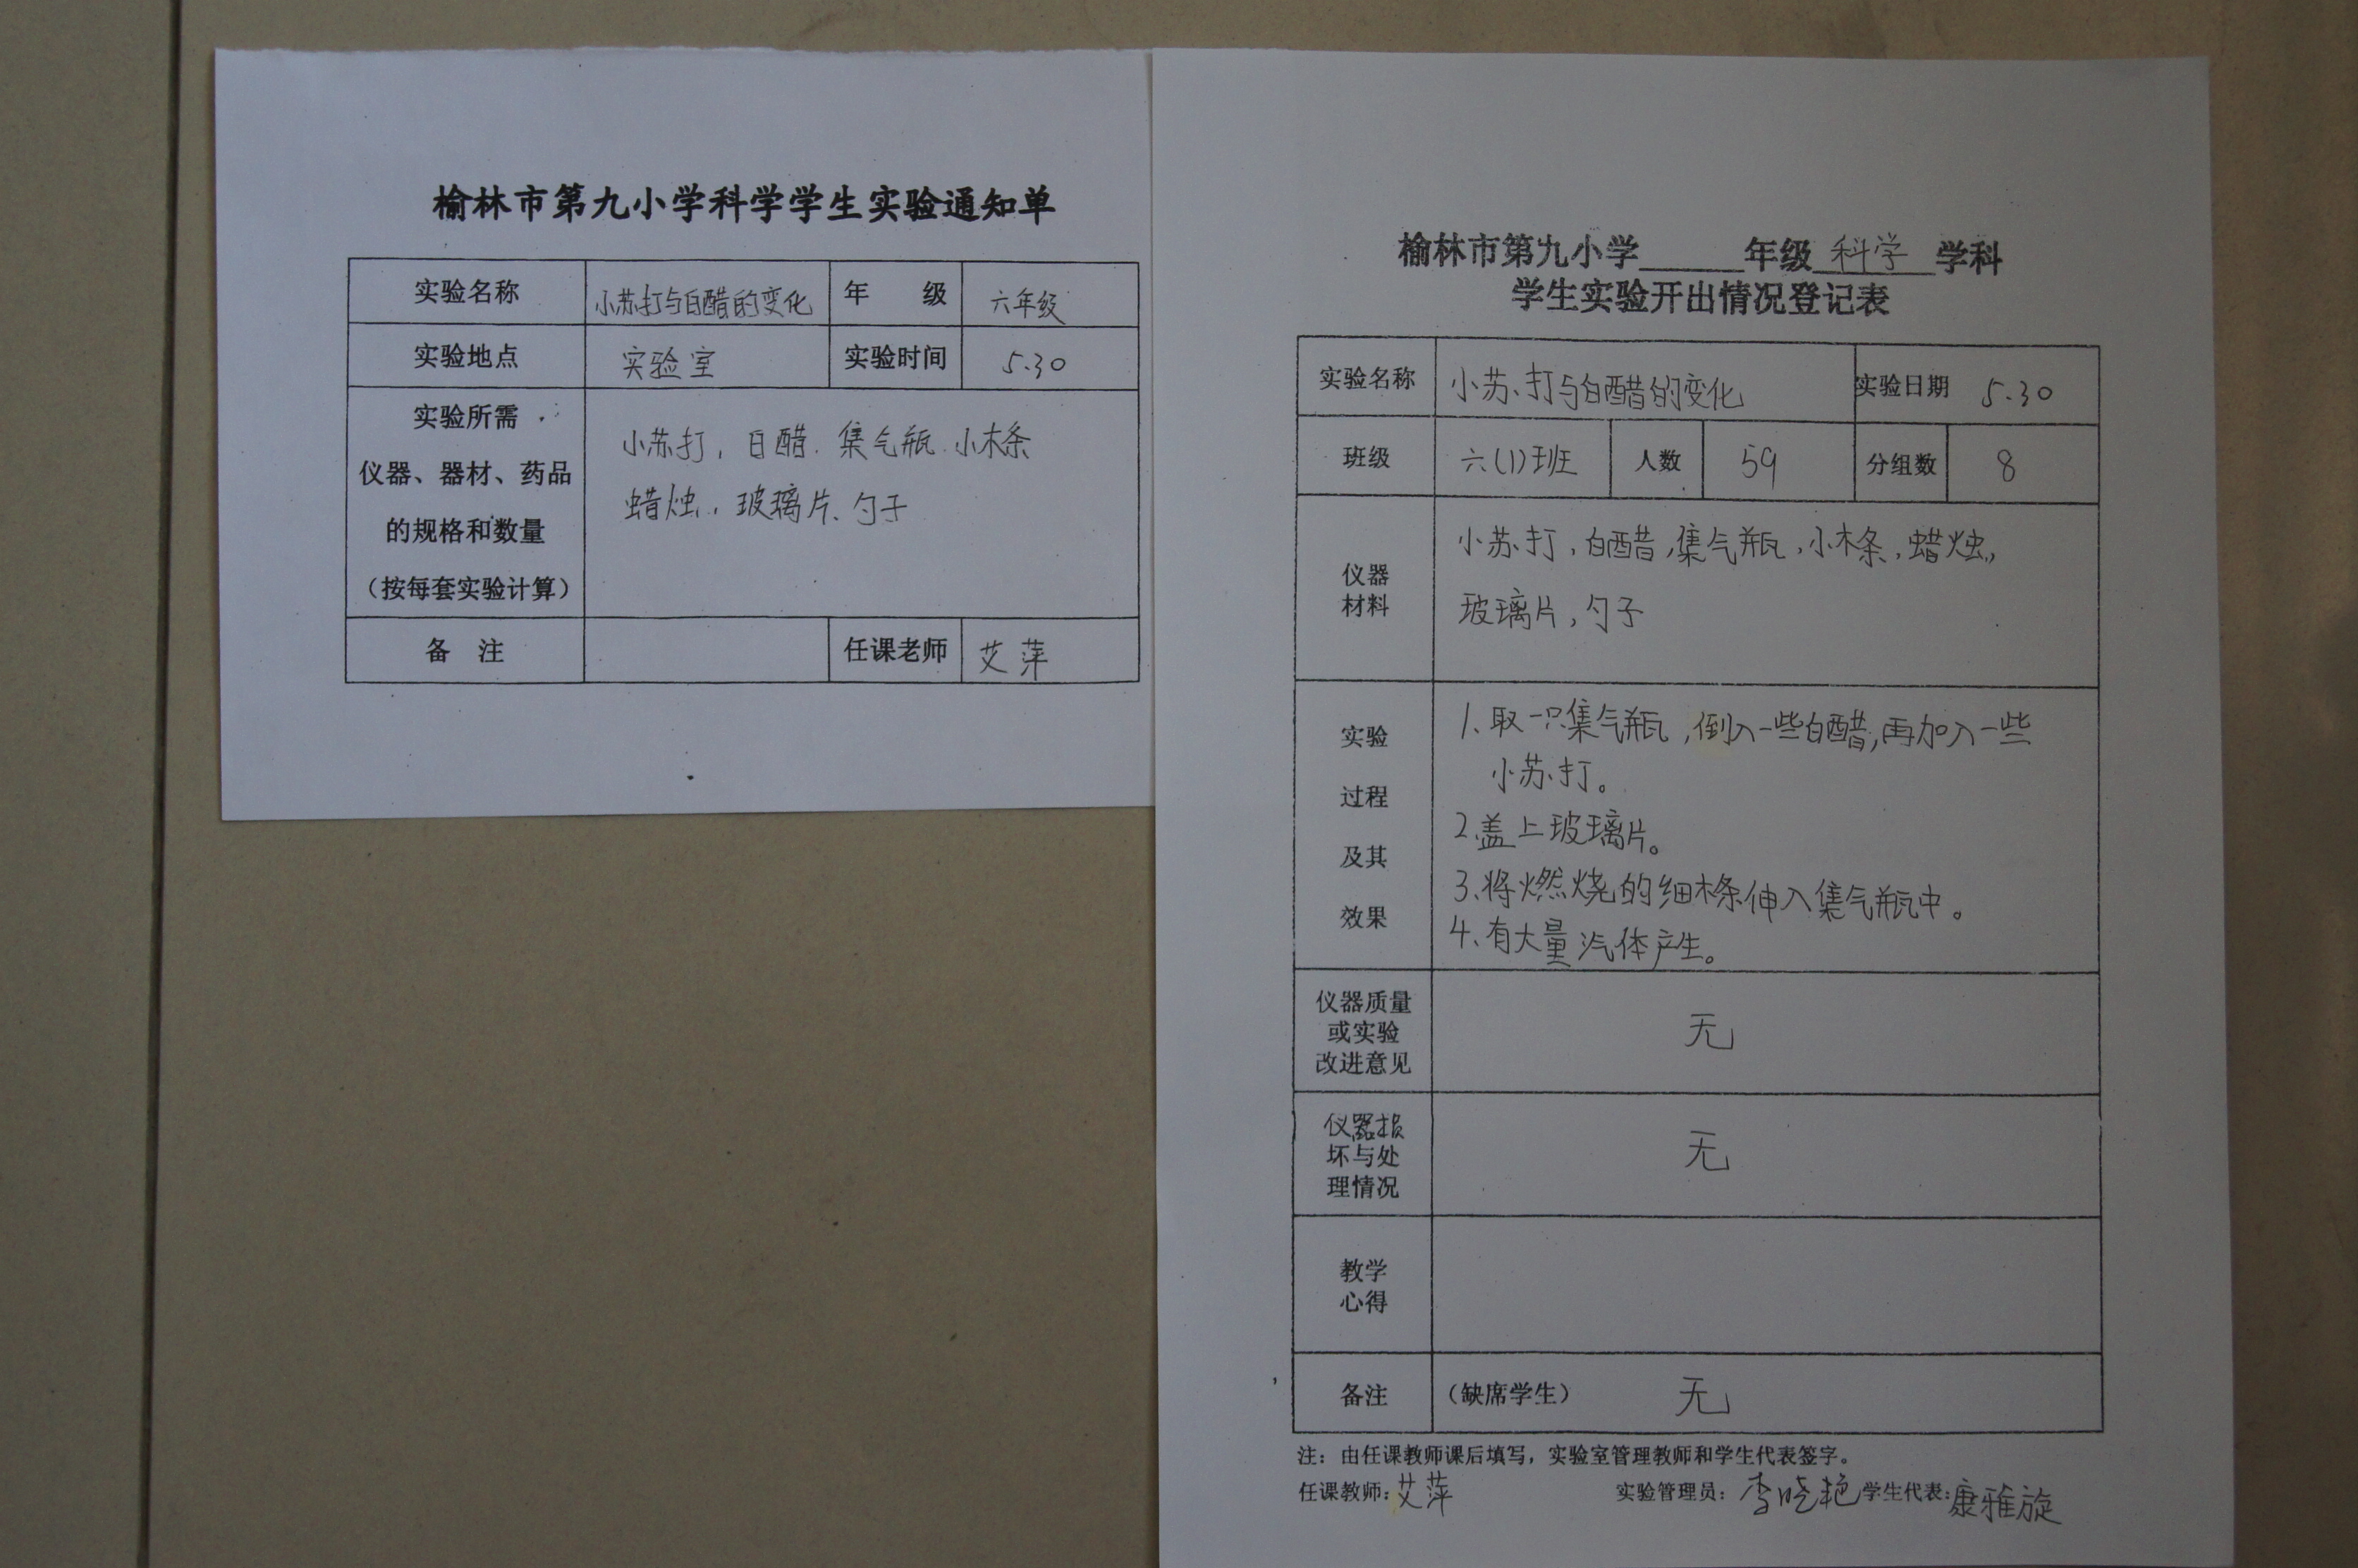 榆林市第九小学科学学生实验通知单
实验名称 小苏打与白醋的变化 年 级 六年级
实验地点 实验室 实验时间 5.30
实验所需
仪器、器材、药品
的规格和数量
（按每套实验计算）
小苏打，白醋．集气瓶．小木条
蜡烛．，玻璃片、勺子
备 注 任课老师 艾萍
榆林市第九小学______年级 科学 学科
学生实验开出情况登记表
实验名称 小苏打与白醋的变化 实验日期 5.30
班级 六(1)班 人数 59 分组数 8
仪器
材料
小苏打，白醋，集气瓶，小木条，蜡烛，
玻璃片，勺子
实验
过程
及其
效果
1、取一只集气瓶，倒入一些白醋，再加入一些
小苏打。
2、盖上玻璃片。
3、将燃烧的细木条伸入集气瓶中。
4、有大量汽体产生。
仪器质量
或实验
改进意见
无
仪器损
坏与处
理情况
无
教学
心得
备注 （缺席学生） 无
注：由任课教师课后填写，实验室管理教师和学生代表签字。
任课教师：艾萍 实验管理员：李晓艳 学生代表：康雅旋